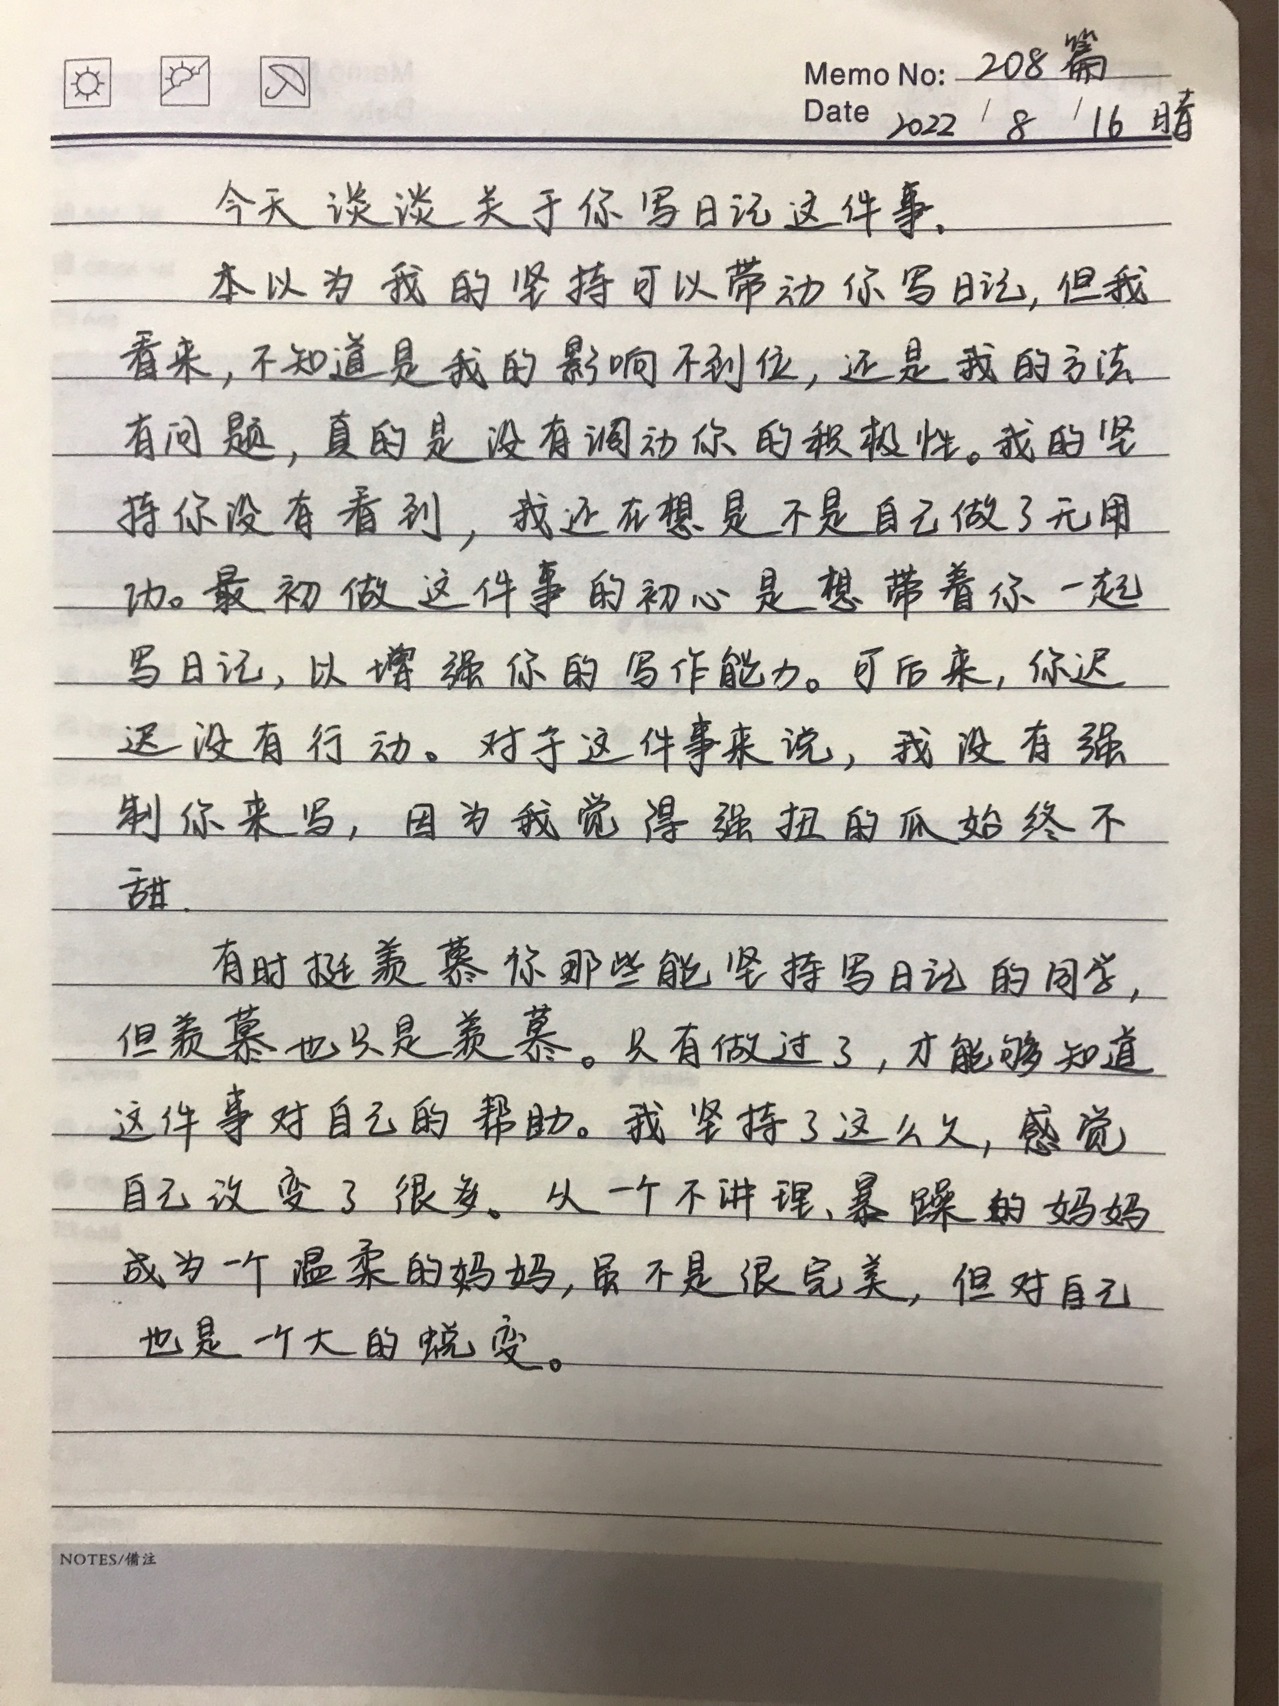 Memo No: 208篇
Date 2022 / 8 / 16 晴
今天谈谈关于你写日记这件事.
本以为我的坚持可以带动你写日记,但我
看来,不知道是我的影响不到位,还是我的方法
有问题,真的是没有调动你的积极性。我的坚
持你没有看到,我还在想是不是自己做了无用
功。最初做这件事的初心是想带着你一起
写日记,以增强你的写作能力。可后来,你迟
迟没有行动。对于这件事来说,我没有强
制你来写,因为我觉得强扭的瓜始终不
甜.
有时挺羡慕你那些能坚持写日记的同学,
但羡慕也只是羡慕。只有做过了,才能够知道
这件事对自己的帮助。我坚持了这么久,感觉
自己改变了很多。从一个不讲理、暴躁的妈妈
成为一个温柔的妈妈,虽不是很完美,但对自己
也是一个大的蜕变。
NOTES/備注